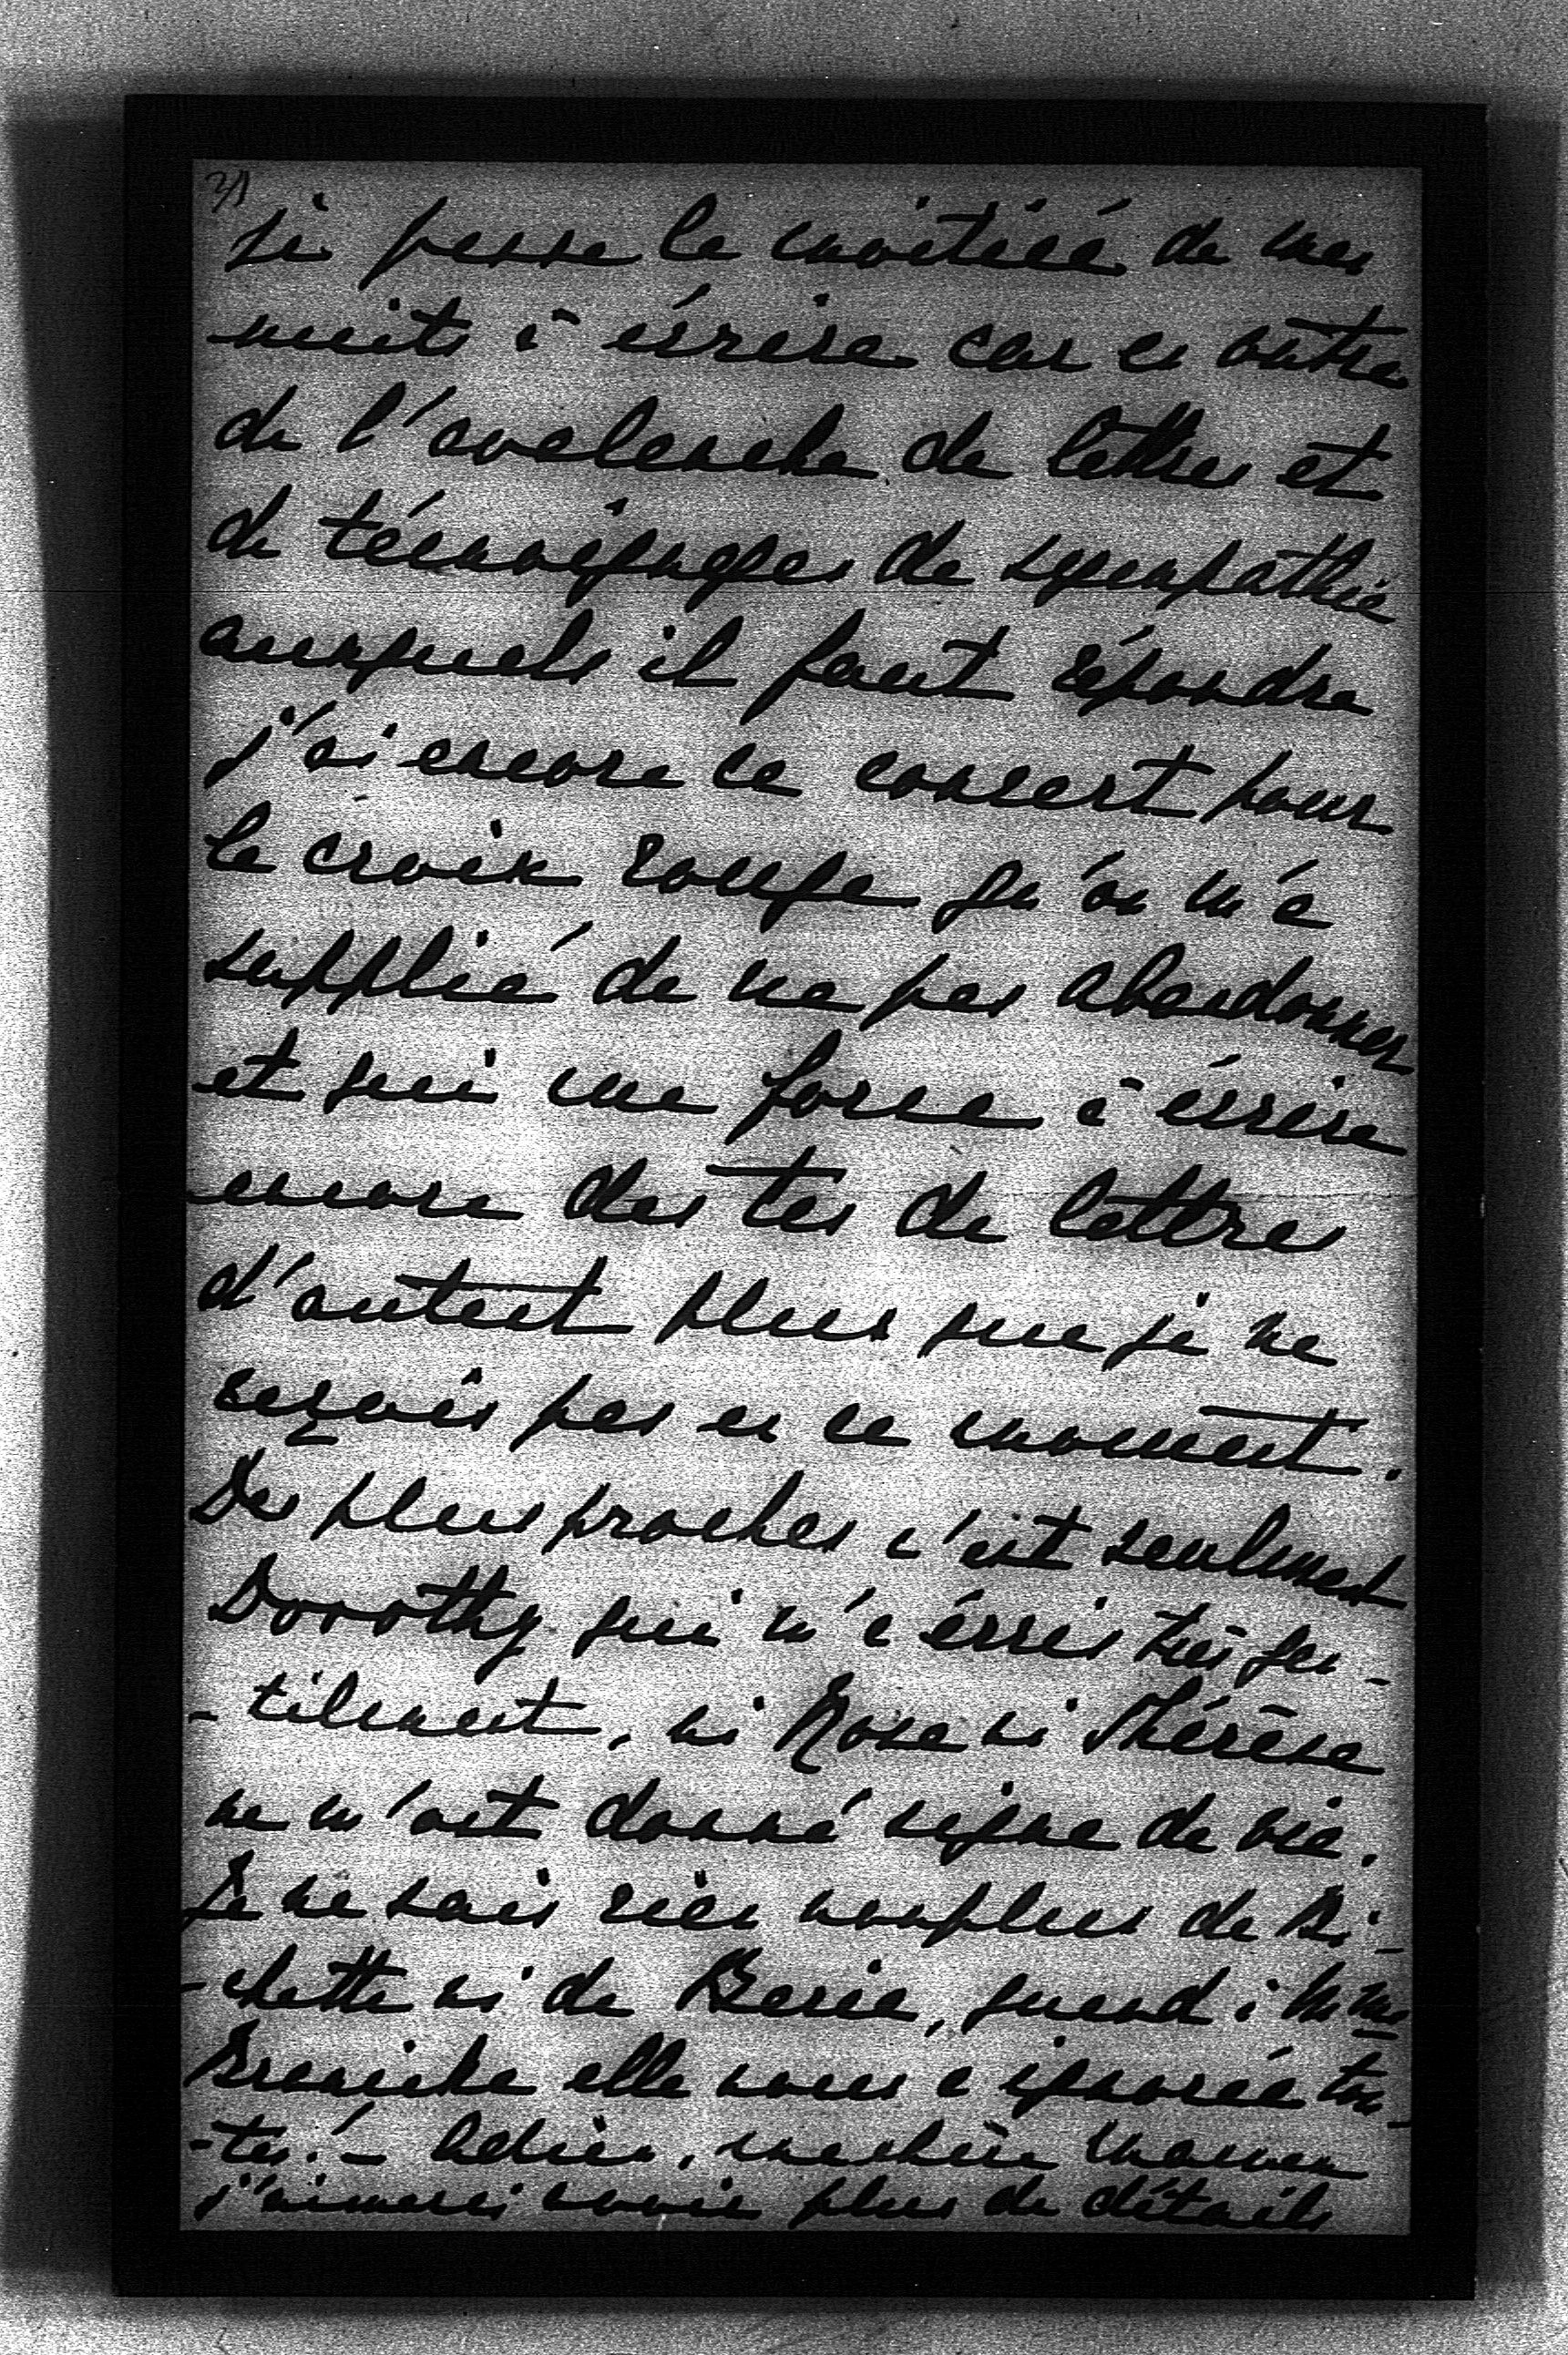 3)
je passe la moitiéé de mes
nuits à écrire car en outre
de l'avalanche de lettres et
de témoignages de sympathie
auxquels il faut répondre
j'ai encore ce concert pour
la croix rouge qu'on m'a
supplié de ne pas abandonner
et qui me force à écrire
encore des tas de lettres
d'autant plus que je ne
reçois pas en ce moment.
Des plus proches c'est seulement
Dorothy qui m'a écris très gen-
-tilement, ni Rose ni Thérèse
ne m'ont donné signe de vie.
Je ne sais rien nonplus de Bi-
-chette ni de            , quand à Mme
           elle nous a ignorée tou-
-tes! - Adieu, ma chère Maman
j'aimerai avoir plus de détails